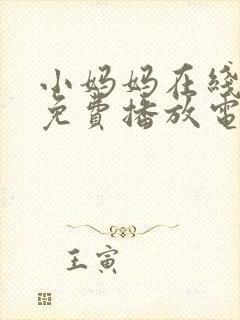 小妈妈在线
免費播放電
王寅